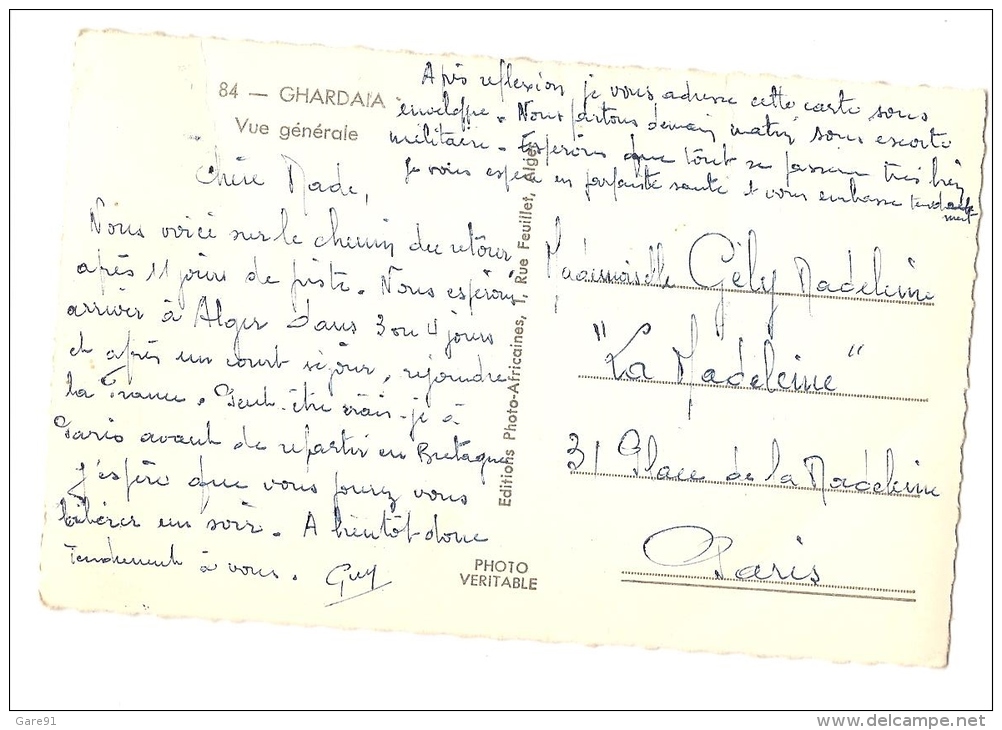 84 — GHARDAIA
Vue générale
Après reflexion je vous adresse cette carte sous
enveloppe. Nous partons demain matin sous escorte
militaire. Espérons que tout se passera très bien
Je vous espère en parfaite santé et vous embrasse tendrement
Chère Made,
Nous voici sur le chemin du retour,
après 11 jours de piste. Nous espérons
arriver à Alger dans 3 ou 4 jours
et après un court séjour, rejoindre
la France. Peut-être irais-je à
Paris avant de repartir en Bretagne
J'espère que vous pourez vous
libérer un soir. A bientôt donc
Tendrement à vous. Guy
Editions Photo-Africaines, 1, Rue Feuillet, Alger
PHOTO
VERITABLE
Mademoiselle Gély Madeleine
"La Madeleine"
31 Place de la Madeleine
Paris
Gare91
delcampe.net